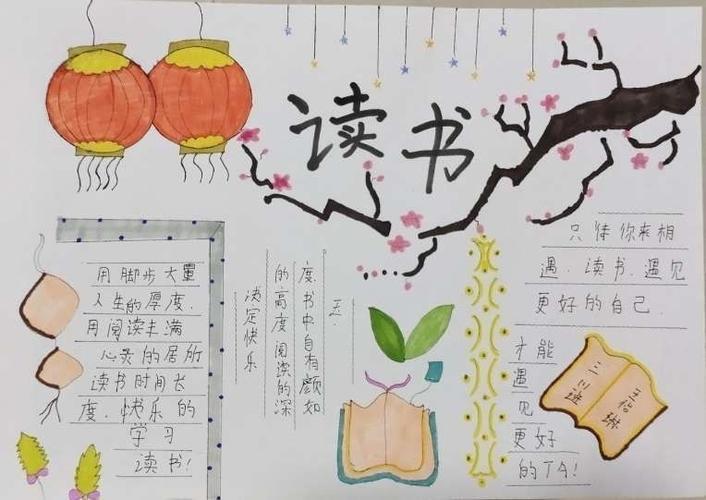 读书
用脚步大量
人生的厚度.
用阅读丰满
心灵的居所
读书时间长
度.快乐的
学习
读书!
玉.
度.书中自有颜如
的高度阅读的深
决定快乐
只待你来相
遇.读书.遇见
更好的自己.
才能
遇
见
更好
的TA!
三川班